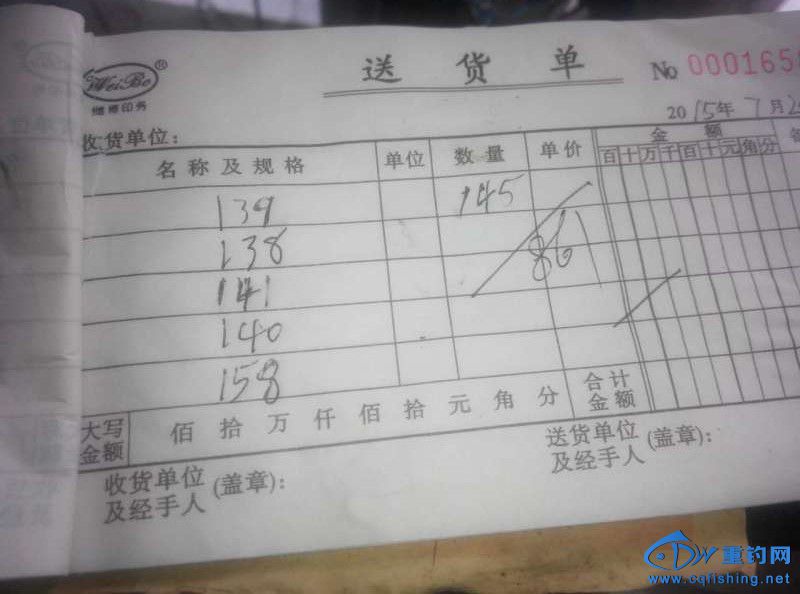 WeiBo®
维博印务
送货单
No 0001658
2015年7月2
收货单位：
名称及规格 单位 数量 单价 金额
百十万千百十元角分
139 145
138 861
141
140
158
大写金额 佰拾万仟佰拾元角分 合计金额
收货单位及经手人(盖章)：
送货单位及经手人(盖章)：
重钓网
www.cqfishing.net